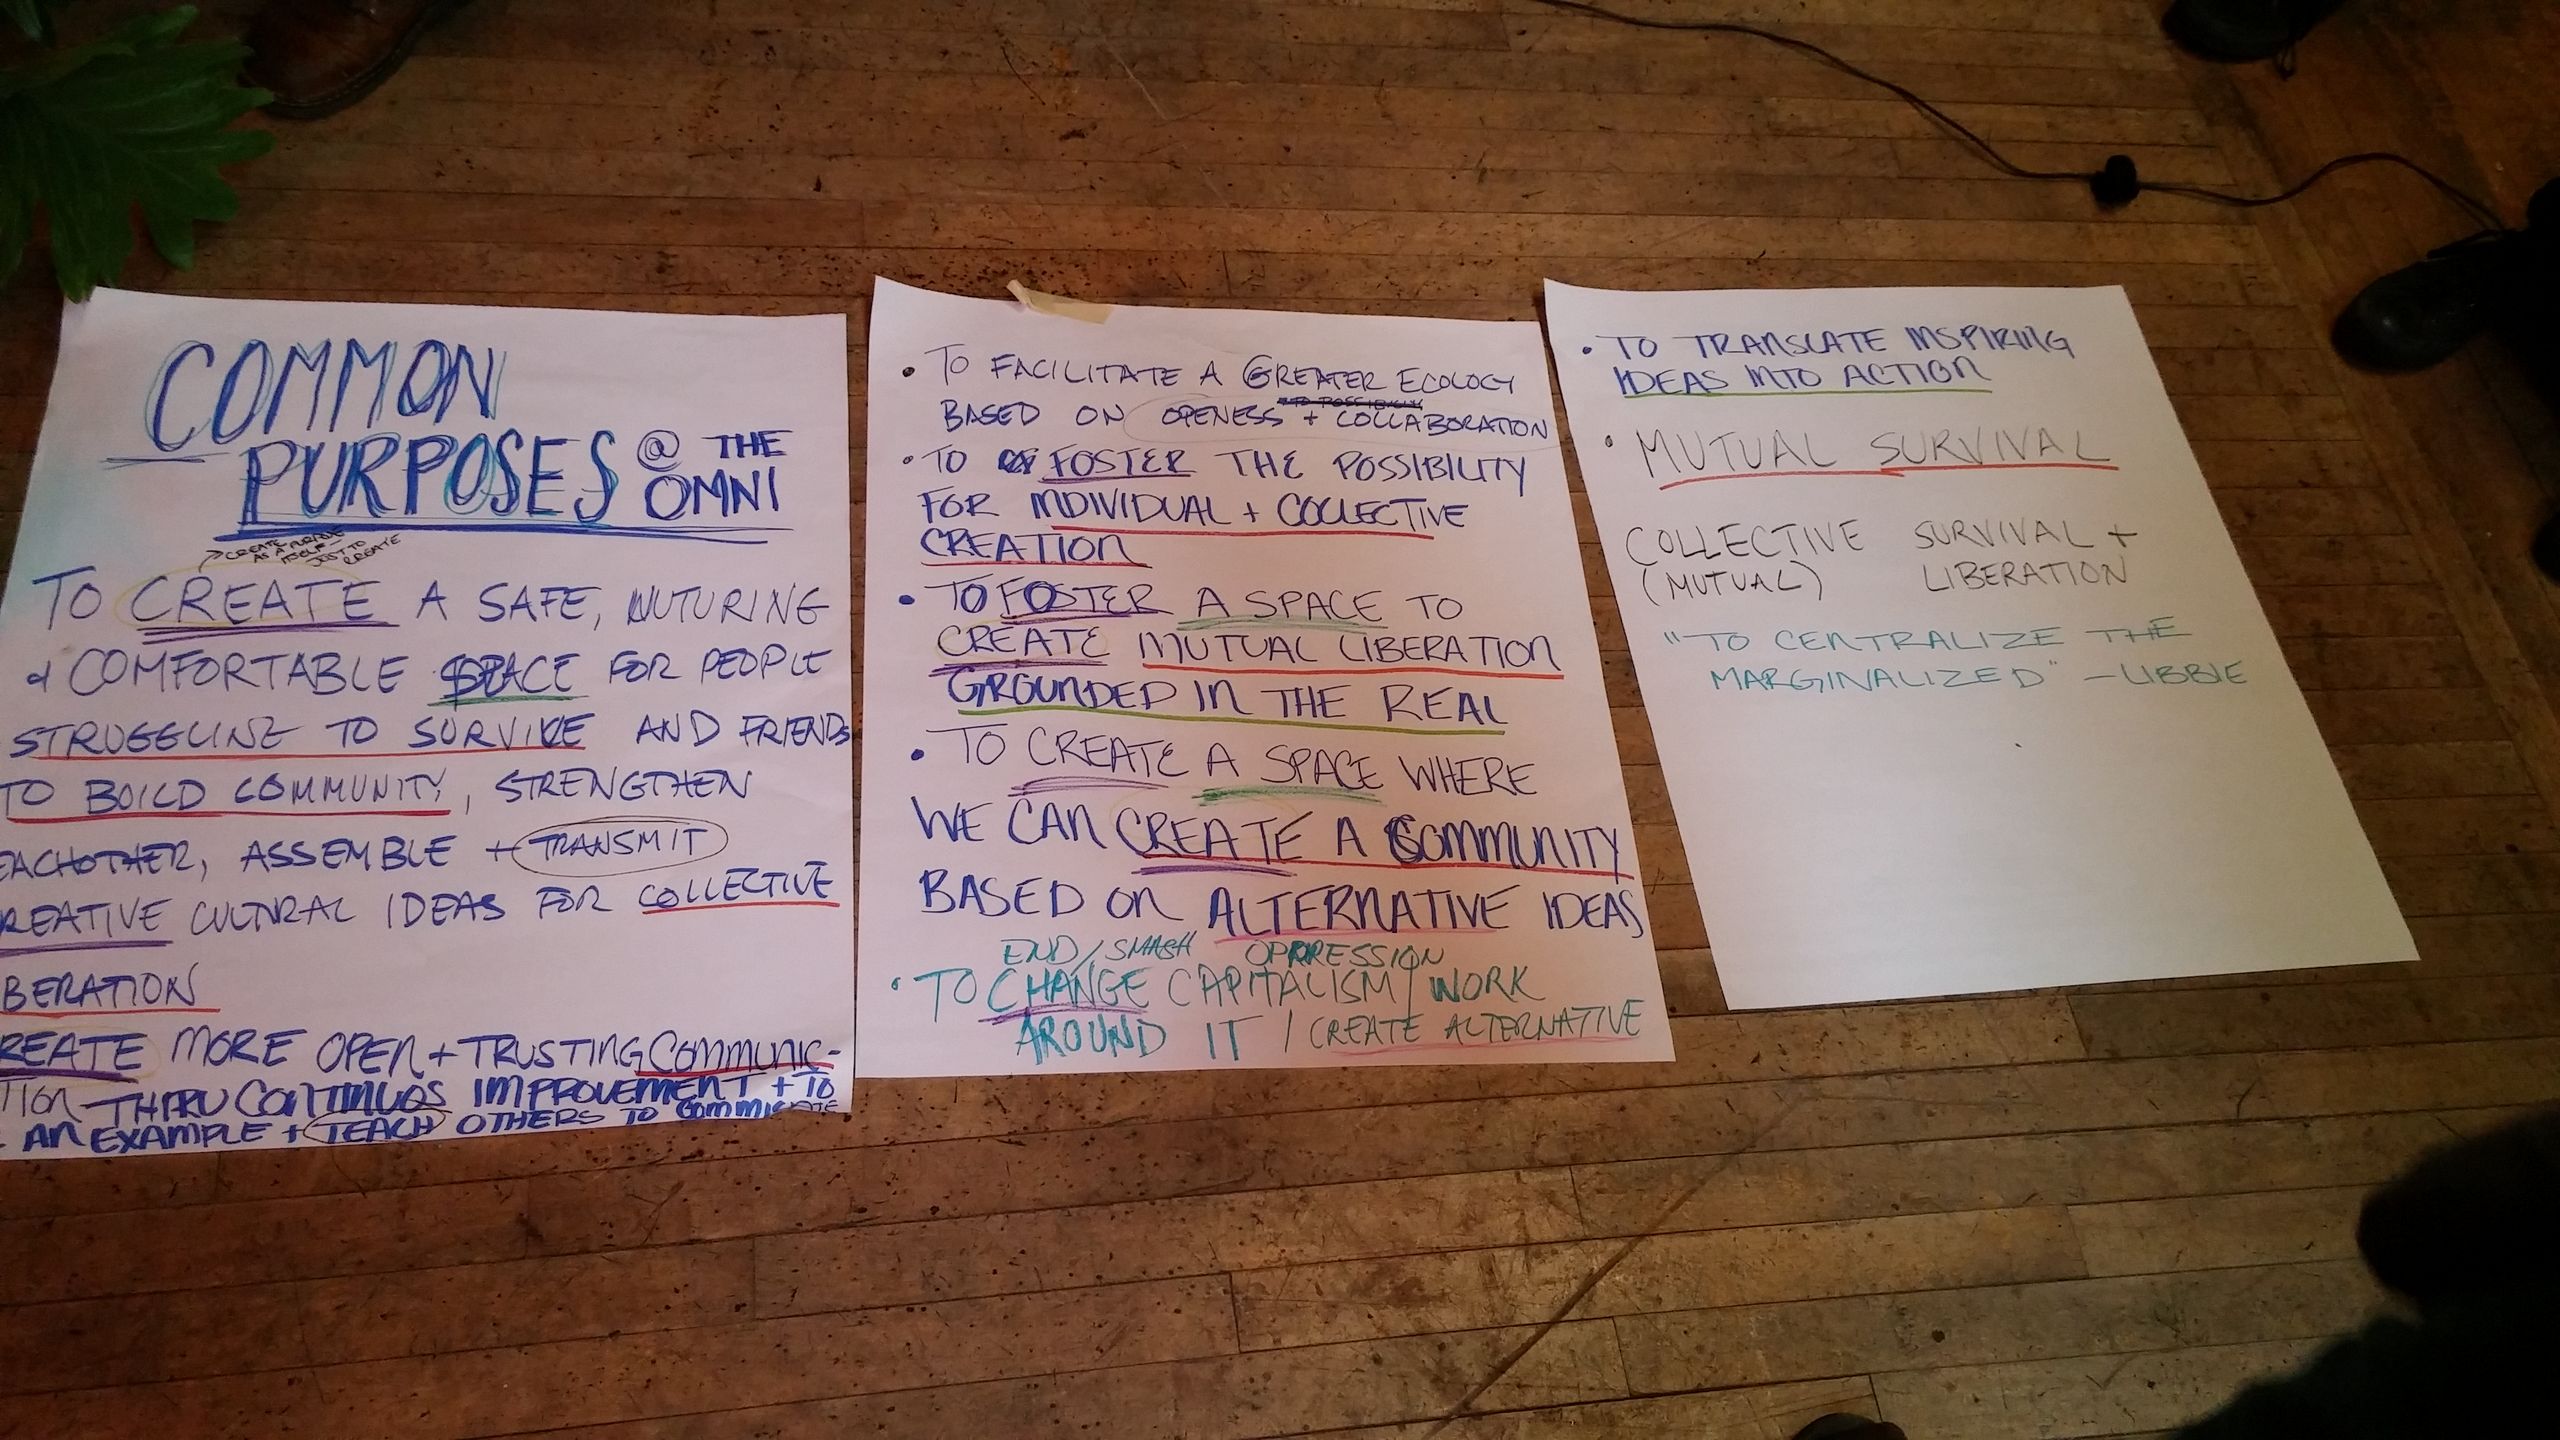 COMMON
PURPOSES @ THE
OMNI
CREATE
AS A PURPOSE
ITSELF -
JUST TO
CREATE
TO CREATE A SAFE, NUTURING
+ COMFORTABLE SPACE FOR PEOPLE
STRUGGLING TO SURVIVE AND FRIENDS
TO BUILD COMMUNITY, STRENGTHEN
EACHOTHER, ASSEMBLE + TRANSMIT
REATIVE CULTURAL IDEAS FOR COLLECTIVE
BERATION
REATE MORE OPEN + TRUSTING COMMUNIC-
TION THRU CONTINUOS IMPROVEMENT + TO
AN EXAMPLE + TEACH OTHERS TO COMMUNICATE
• TO FACILITATE A GREATER ECOLOGY
BASED ON OPENESS + COLLABORATION
• TO FOSTER THE POSSIBILITY
FOR INDIVIDUAL + COLLECTIVE
CREATION
• TO FOSTER A SPACE TO
CREATE MUTUAL LIBERATION
GROUNDED IN THE REAL
• TO CREATE A SPACE WHERE
WE CAN CREATE A COMMUNITY
BASED ON ALTERNATIVE IDEAS
END / SMASH OPPRESSION
• TO CHANGE CAPITALISM / WORK
AROUND IT / CREATE ALTERNATIVE
• TO TRANSLATE INSPIRING
IDEAS INTO ACTION
• MUTUAL SURVIVAL
COLLECTIVE SURVIVAL +
(MUTUAL) LIBERATION
"TO CENTRALIZE THE
MARGINALIZED" - LIBBIE